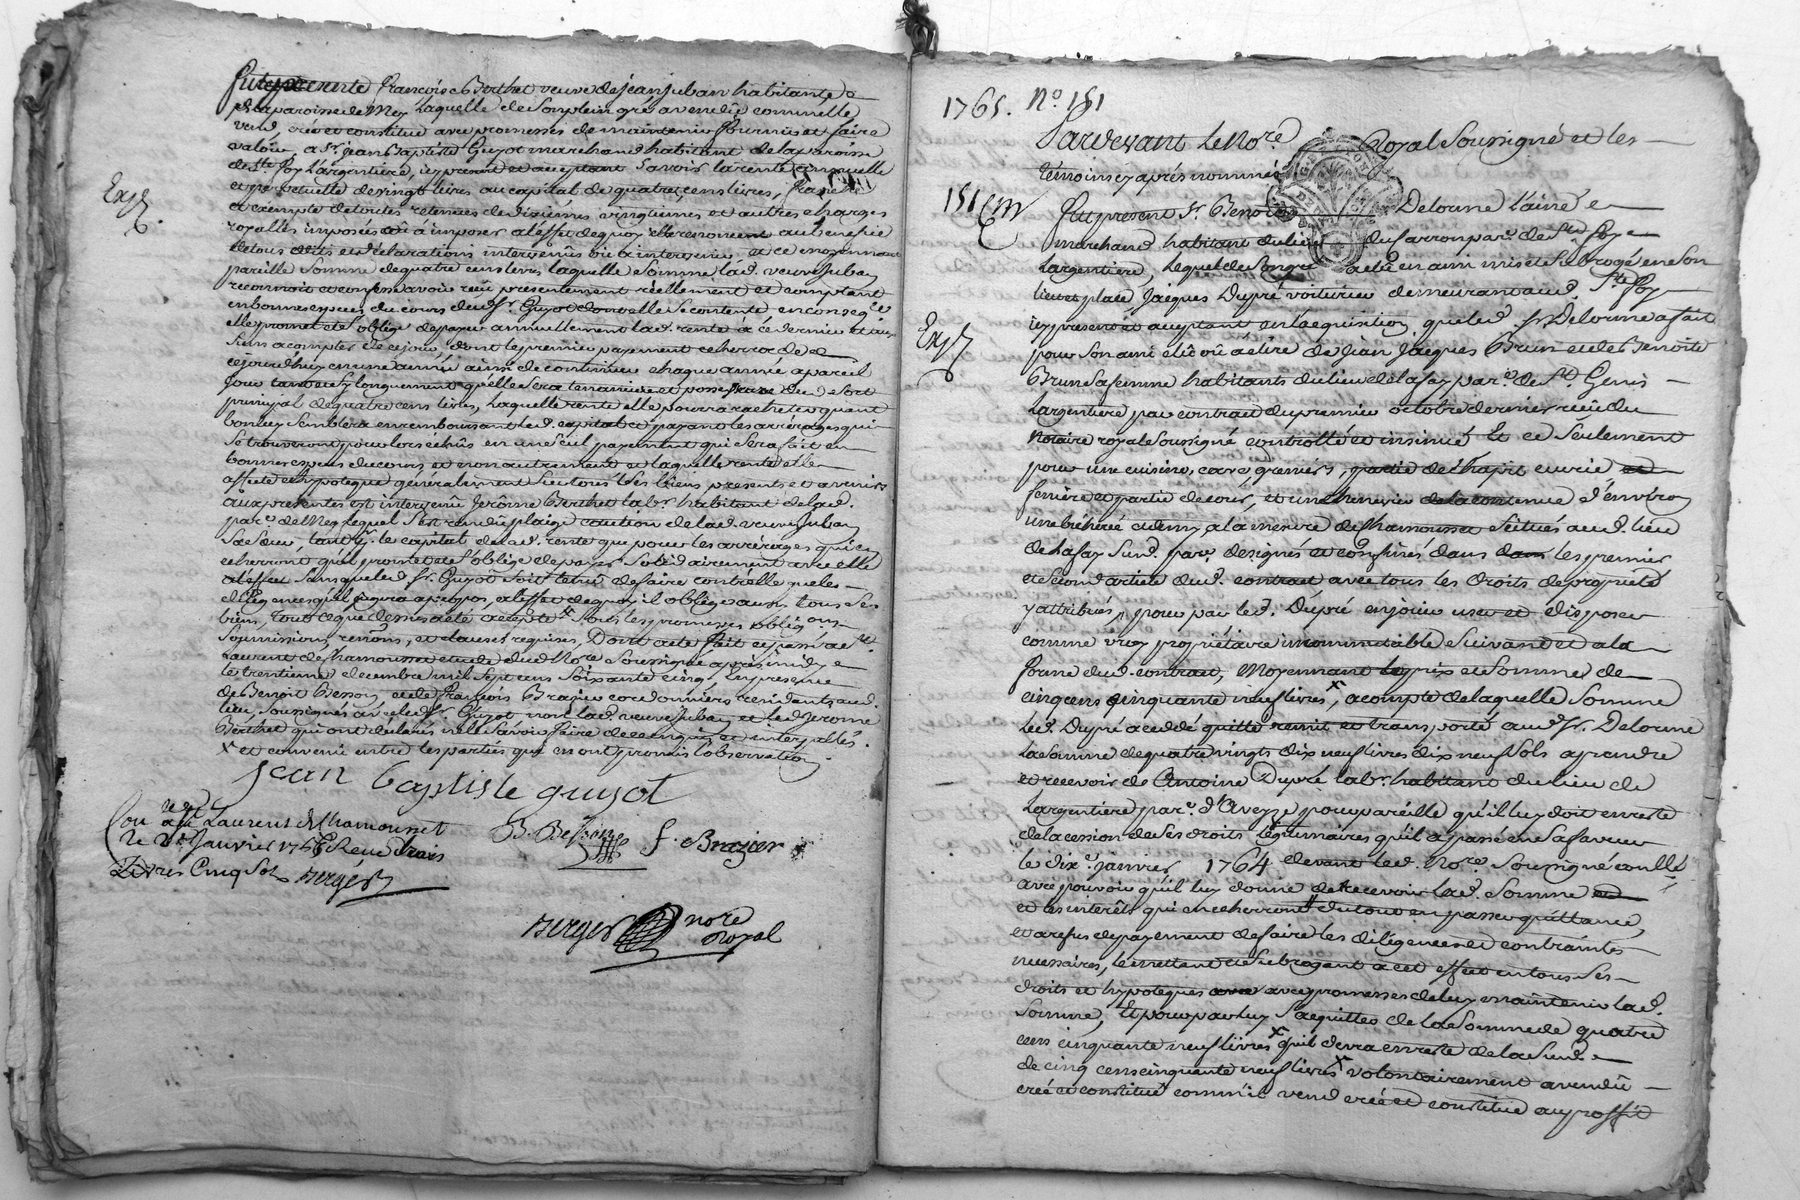 fut presente françoise Berthet veuve de jean juban habitante
de la paroisse de Meys laquelle de son plein gré a vendû comm'elle
vend, créé et constitue avec promesses de maintenir fournir et faire
valoir a Sr. jean Baptiste Guyot marchand habitant de la paroisse
de Ste. foy L'argentiere, icy present et acceptant Savoir la rente annuelle
et perpetuelle de vingt livres au capital de quatre cens livres, franche
et exempte de toutes retenues de dixiemes vingtiemes et autres charges
royalles imposées ou a imposer a l'effet de quoy elle renonce au benefice
de tous edits et declarations intervenûs ou a intervenir, et ce moyennant
pareille Somme de quatre cens livres laquelle Somme lad. veuve juban
reconnoit et confesse avoir reçû presentement réellement et comptant
en bonnes especes du cours dud. Sr. Guyot dont elle Se contente en conseqce.
elle promet et S'oblige de payer annuellement lad. rente a ce dernier et aux
Siens a compter de ce jour, dont le premier payement echerra de
ce jourd'huy en une année ainsi de continuer chaque année a pareil
jour tant et Sy longuement qu'elle Sera tenanciere et posse du Sort
principal de quatre cens livres, laquelle rente elle pourra racheter quant
bon luy Semblera en remboursant led. capital et payant les arrérages qui
Se trouveront pour lors échûs en un Seul payement qui Sera fait en
bonnes especes du cours et non autrement et laquelle rente elle
affecte et hypoteque généralement Sur tous Ses biens presents et avenirs
aux presentes est intervenû Jerôme Berthet labr. habitant de lad.
parr. de Meys lequel S'est rendû plaige caution de lad. veuve juban
Sa Sœur, tant pr. le capital de lad. rente que pour les arrérages qui en
echerront qu'il promet et S'oblige de payer Solidairement avec elle
a l'effet Sans que led. Sr. Guyot Soit tenû de faire contr'elle que les
diligences qu'il jugera apropos, a l'effet de quoy il oblige aussi tous Ses
biens, Tout ce que dessus a été accepté x Sous les promesses obligons.
Soumissions, renons. et clauses requises, Dont acte fait et passé a St.
Laurent de Chamousset etude dud. Nore. Soussigné apres midy
le trentieme decembre mil Sept cens Soixante cinq, En presence
de Benoit Besson et de françois Brazier cordonniers residants aud.
lieu, Soussignés avec led. Sr. Guyot non lad. veuve juban et led. Jerome
Berthet qui ont declarés ne le Savoir faire de ce enquis et interpellés.
x et convenû entre les parties qui en ont promis l'observation
jean baptiste guyot
Con à St. Laurent de Chamousset
le Janvier 1766 Reçu trois
Livres Cinq Sols Berger
B. Besson f. Brazier
Berger nore
Royal
Exp.
1765. No. 151
Pardevant Le Nore. Royal Soussigné et les
témoins cy aprés nommés
151 Cm
fut present Sr. Benoit Delorme l'ainé
marchand habitant du lieu du farron parr. de Ste. foy
Largentiere, lequel de Son gré a élû en ami mis et Subrogé en Son
lieu et place Jacques Dupré voiturier demeurant aud. Ste. foy
icy present et acceptant en l'acquisition que led. Sr. Delorme a fait
Exp.
pour Son ami elû ou a elire de Jean Jacques Brun et de Benoite
Brun Sa femme habitants du lieu de la fay parr. de St. Genis
Largentiere par contrat du premier octobre dernier reçû du
Notaire royal Soussigné controllé et insinué Et ce Seulement
pour une cuisine, cave, greniers, partie de chapit ecurie
feniere et partie de cour, et une cheneviere de la contenue d'environ
une bicherée et demy a la mesure de Chamousset Scitués aud. lieu
de la fay Susd. parr. designés et confinés dans les premier
et Second article dud. contrat avec tous les droits de proprieté
y attribués, pour par led. Dupré en jouir user et disposer
comme vray propriétaire incommutable Suivant et a la
forme dud. contrat, Moyennant le prix et Somme de
cinq cens cinquante neuf livres x, acompte de laquelle Somme
led. Dupré a cédé quitté remit et transporté aud. Sr. Delorme
la Somme de quatre vingts dix neuf livres dix neuf Sols a prendre
et recevoir de Antoine Dupré labr. habitant du lieu de
Largentiere parr. d'Aveyze pour pareille qu'il luy doit en reste
de la cession de Ses droits légitimaires qu'il a passé en Sa faveur
le dix janvier 1764 devant led. Nore. Soussigné conllé.
avec pouvoir qu'il luy donne de recevoir lad. Somme
et les interêts qui en echerront du tout en passer quittance,
et a refus de payement de faire les diligences et contraintes
necessaires, le mettant et Subrogeant a cet effet en tous Ses
droits et hypoteques avec promesses de luy maintenir lad.
Somme, Et pour par luy S'acquitter de la Somme de quatre
cens cinquante neuf livres x qu'il devra en reste de la Susd.
de cinq cens cinquante neuf livres x volontairement a vendû
créé et constitué comm'il vend créé et constitue au profit